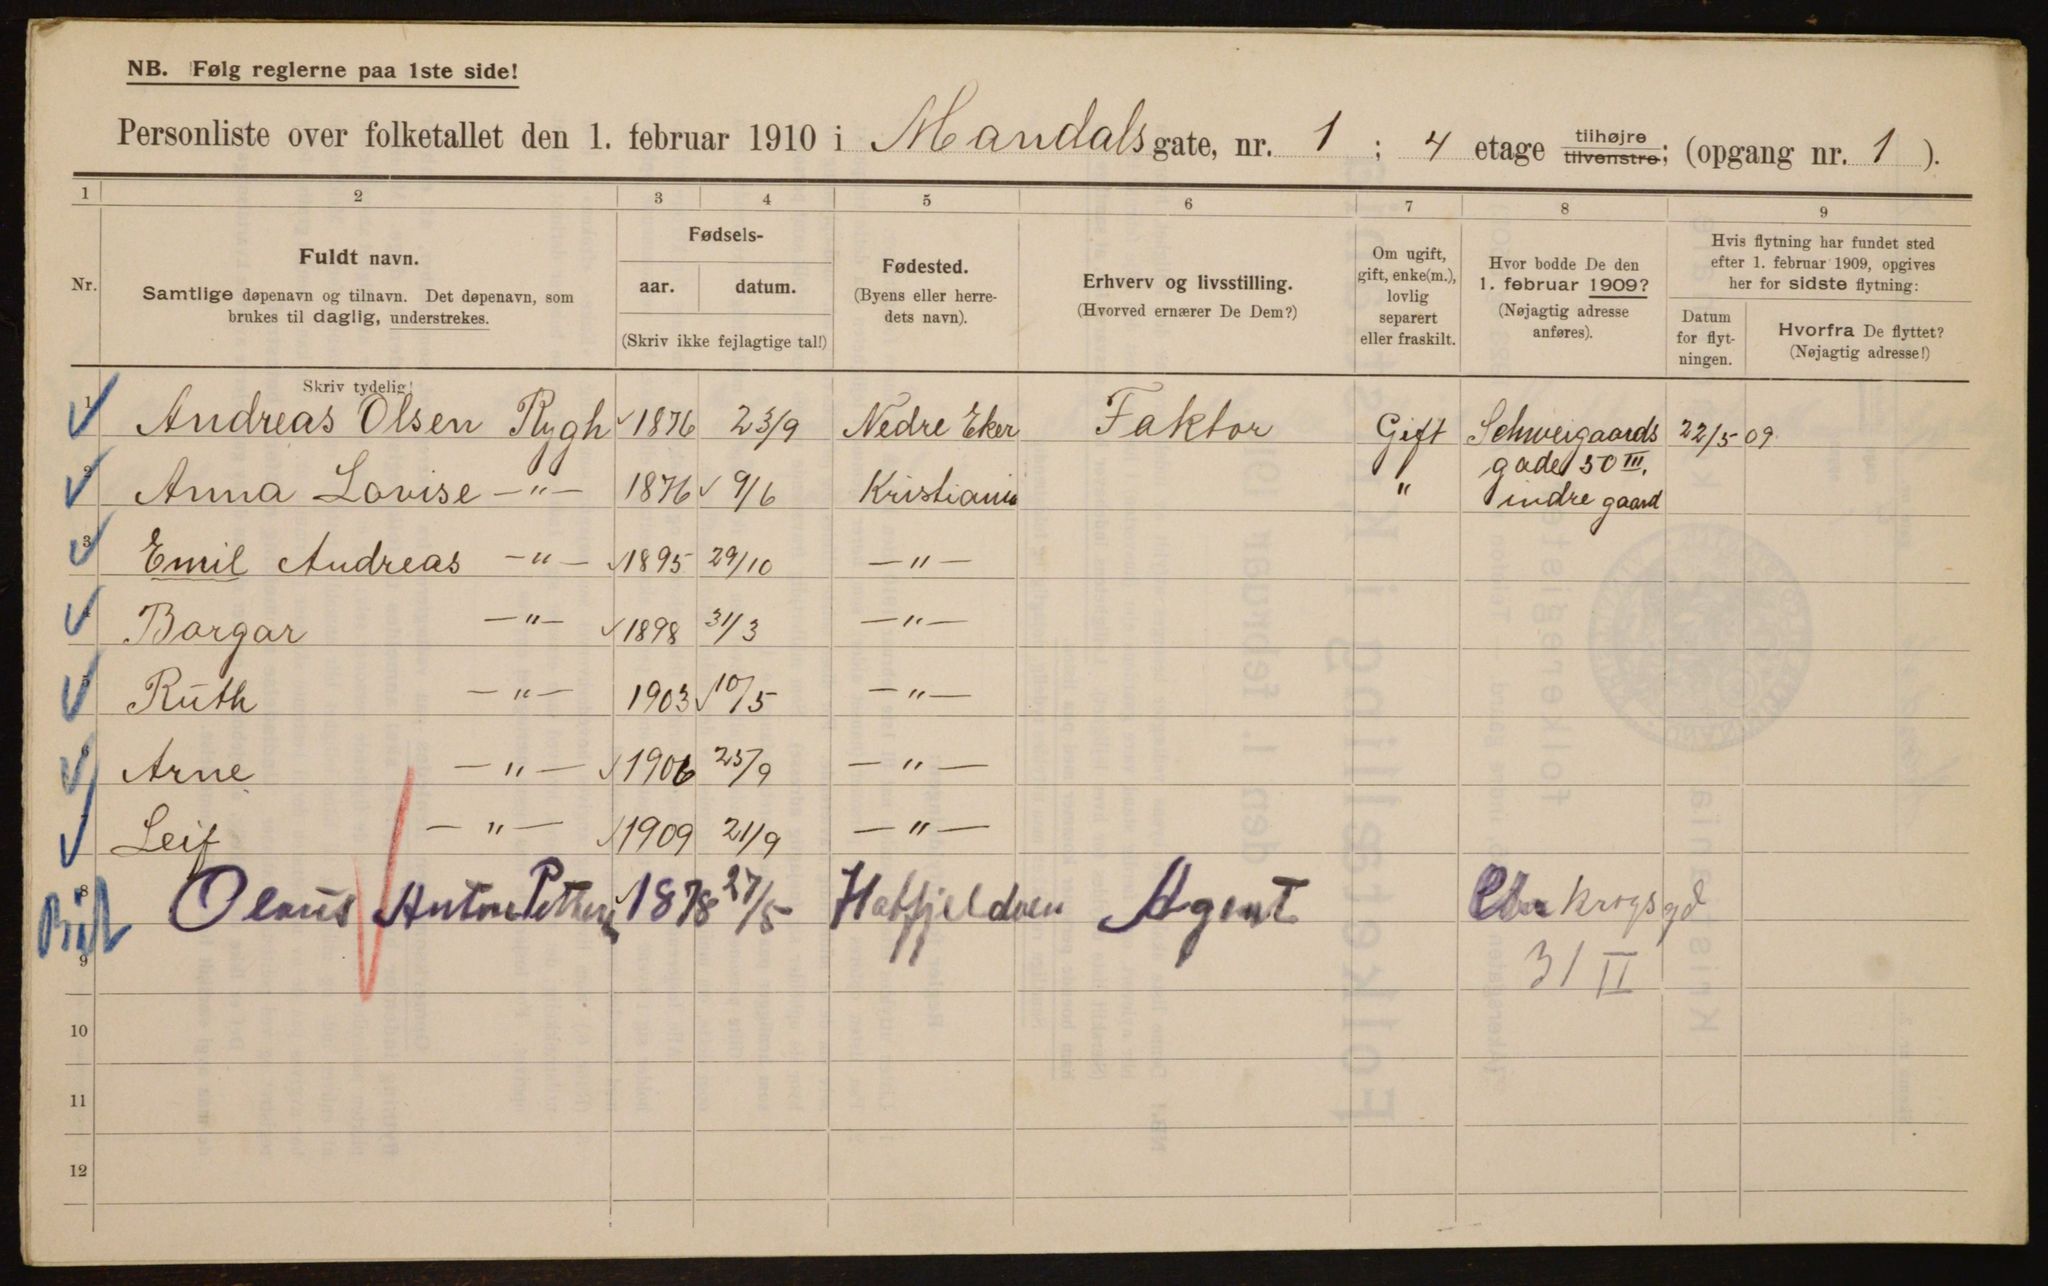 NB. Følg reglerne paa 1ste side!
Personliste over folketallet den 1. februar 1910 i Mandals gate, nr. 1 ; 4 etage tilhøjre tilvenstre; (opgang nr. 1 ).
1 2 3 4 5 6 7 8 9
Nr.
Fuldt navn.
Samtlige døpenavn og tilnavn. Det døpenavn, som
brukes til daglig, understrekes.
Fødsels-
aar. datum.
(Skriv ikke fejlagtige tal!)
Fødested.
(Byens eller herre-
dets navn).
Erhverv og livsstilling.
(Hvorved ernærer De Dem?)
Om ugift,
gift, enke(m.),
lovlig
separert
eller fraskilt.
Hvor bodde De den
1. februar 1909?
(Nøjagtig adresse
anføres).
Hvis flytning har fundet sted
efter 1. februar 1909, opgives
her for sidste flytning:
Datum
for flyt-
ningen.
Hvorfra De flyttet?
(Nøjagtig adresse!)
Skriv tydelig!
1 Andreas Olsen Rygh 1876 23/9 Nedre Eker Faktor Gift Schweigaards 22/5 09
gade 50 III.
2 Anna Lovise —"— 1876 9/6 Kristiania " indre gaard
3 Emil Andreas —"— 1895 29/10 —"—
4 Borgar —"— 1898 31/3 —"—
5 Ruth —"— 1903 10/5 —"—
6 Arne —"— 1906 25/9 —"—
Leif —"— 1909 21/9 —"—
8 Olaus Anton Pettersen 1878 27/5 Hatfjeldalen Agent krogsgd
9 31 II
10
11
12